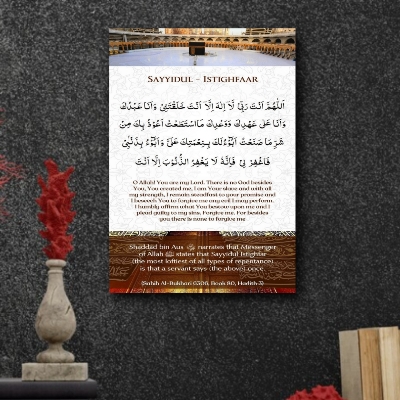 SAYYIDUL - ISTIGHFAAR
اَللّٰهُمَّ اَنْتَ رَبِّيْ لَّا اِلٰهَ اِلَّا اَنْتَ خَلَقْتَنِيْ وَاَنَا عَبْدُكَ
وَاَنَا عَلٰى عَهْدِكَ وَوَعْدِكَ مَااسْتَطَعْتُ اَعُوْذُ بِكَ مِنْ
شَرِّ مَا صَنَعْتُ اَبُوْءُلَكَ بِنِعْمَتِكَ عَلَيَّ وَاَبُوْءُ بِذَنْبِيْ
فَاغْفِرْ لِيْ فَاِنَّهٗ لَا يَغْفِرُ الذُّنُوْبَ اِلَّا اَنْتَ
O Allah! You are my Lord. There is no God besides
You, You created me, I am Your slave and with all
my strength, I remain steadfast to your promise and
I beseech You to forgive me any evil I may perform.
I humbly affirm what You bestow upon me and I
plead guilty to my sins. Forgive me. For besides
you there is none to forgive me
Shaddad bin Aus narrates that Messenger
of Allah ﷺ states that Sayyidul Istighfar
(the most loftiest of all types of repentance)
is that a servant says (the above) once.
(Sahih Al-Bukhari 6306, Book 80, Hadith 3)